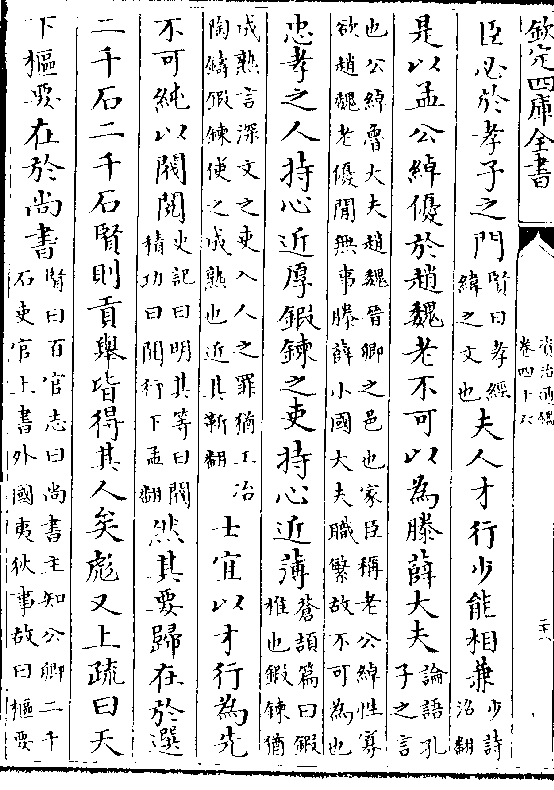 欽定四庫全書
資治通鑑
卷四十六
二十八
臣必於孝子之門賢曰孝經緯之文也夫人才行少能相兼少詩沼翻
是以孟公綽優於趙魏老不可以為滕薛大夫論語孔子之言
也公綽魯大夫趙魏晉卿之邑也家臣稱老公綽性寡
欲趙魏老優閒無事滕薛小國大夫職繁故不可為也
忠孝之人持心近厚鍛鍊之吏持心近薄蒼頡篇曰鍛椎也鍛鍊猶
成熟言深文之吏入人之罪猶工冶陶鑄鍛鍊使之成熟也近其靳翻士宜以才行為先
不可純以閥閲史記曰明其等曰閥積功曰閲行下孟翻然其要歸在於選
二千石二千石賢則貢舉皆得其人矣彪又上疏曰天
下樞要在於尚書賢曰百官志曰尚書主知公卿二千石吏官上書外國夷狄事故曰樞要